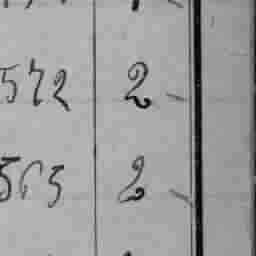 572 2 -
565 2 -